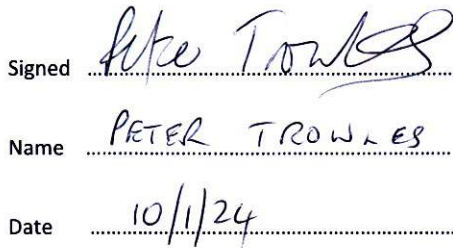 Signed Pete Trowles
Name PETER TROWLES
Date 10/1/24